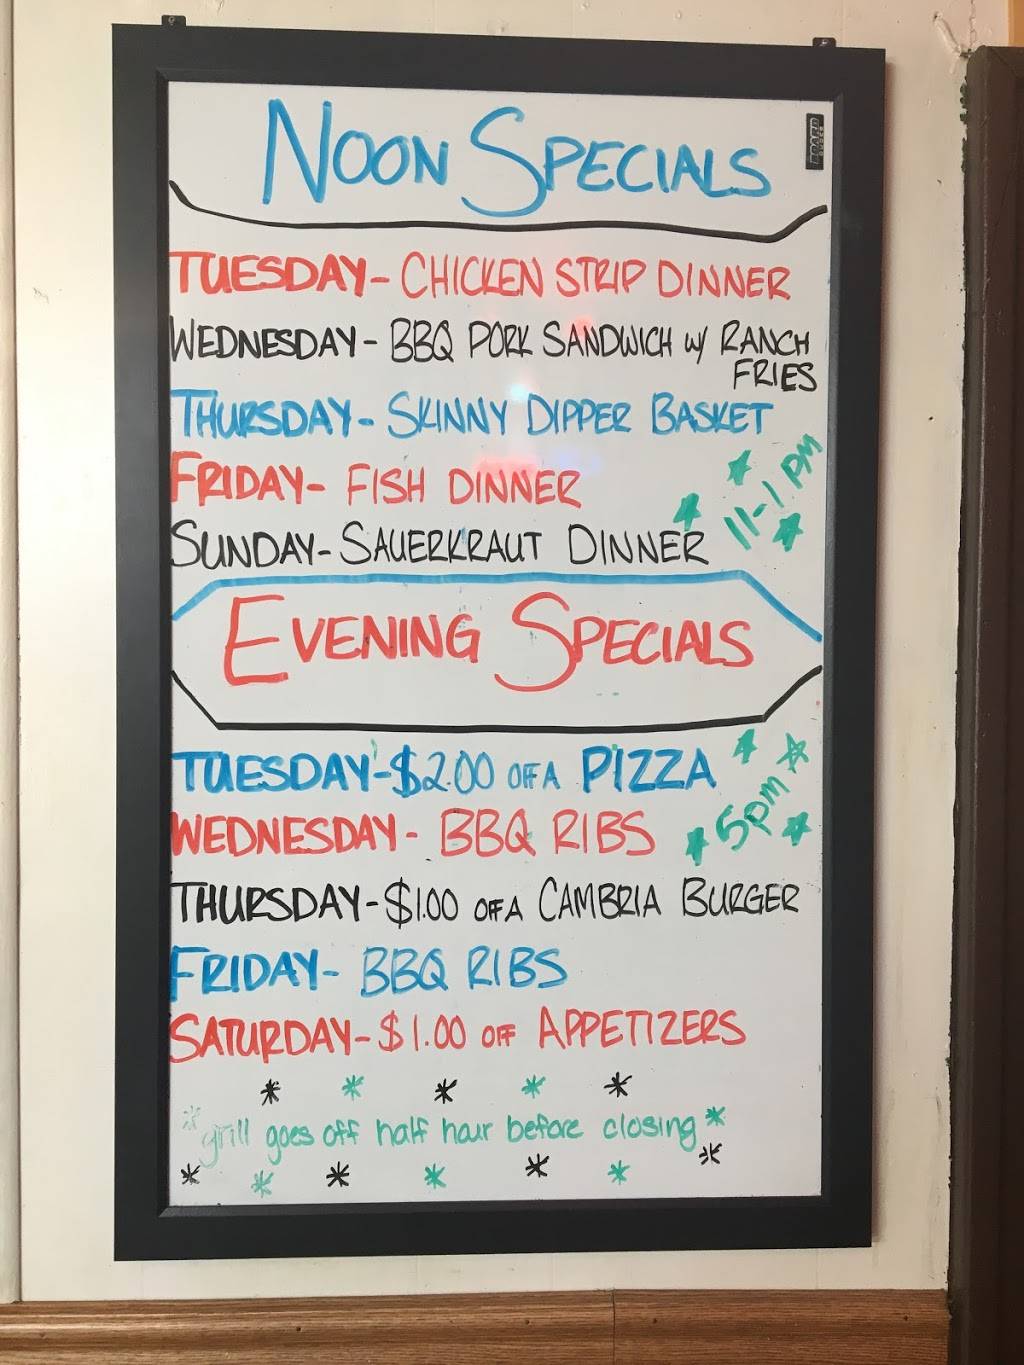 NOON SPECIALS
TUESDAY- CHICKEN STRIP DINNER
WEDNESDAY- BBQ PORK SANDWICH W/ RANCH
FRIES
THURSDAY- SKINNY DIPPER BASKET
FRIDAY- FISH DINNER
SUNDAY- SAUERKRAUT DINNER
11-1 PM
EVENING SPECIALS
TUESDAY-$2.00 OFF A PIZZA
WEDNESDAY- BBQ RIBS
5pm
THURSDAY-$1.00 OFF A CAMBRIA BURGER
FRIDAY- BBQ RIBS
SATURDAY-$1.00 OFF APPETIZERS
grill goes off half hour before closing